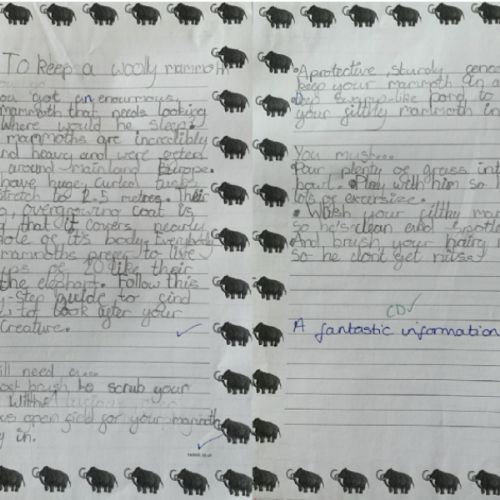 To keep a woolly mammoth
you got an enormous
mammoth that needs looking
where would he sleep?
mammoths are incredibly
nd heavy and were
around mainland Europe.
have huge curled tusks
stretch to 2.5 metres. Their
overgrowing coat is
g that it covers nearly
hole of it's body. Everybody
mammoths prefer to live
ups of 10 like their
the elephant. Follow this
y-step guide to find
w to look after your
creature.
ill need a...
brush to scrub your
With
open field for your mammoth
y in.
A protective, sturdy, fence
keep your mammoth in a
swamp-like pond to
your filthy mammoth in
You must...
Pour plenty of grass int
bowl. Play with him so
lots of excersize.
Wash your filthy ma
so he's clean and spotle
And brush your hairy
so he dont get
CD
A fantastic information